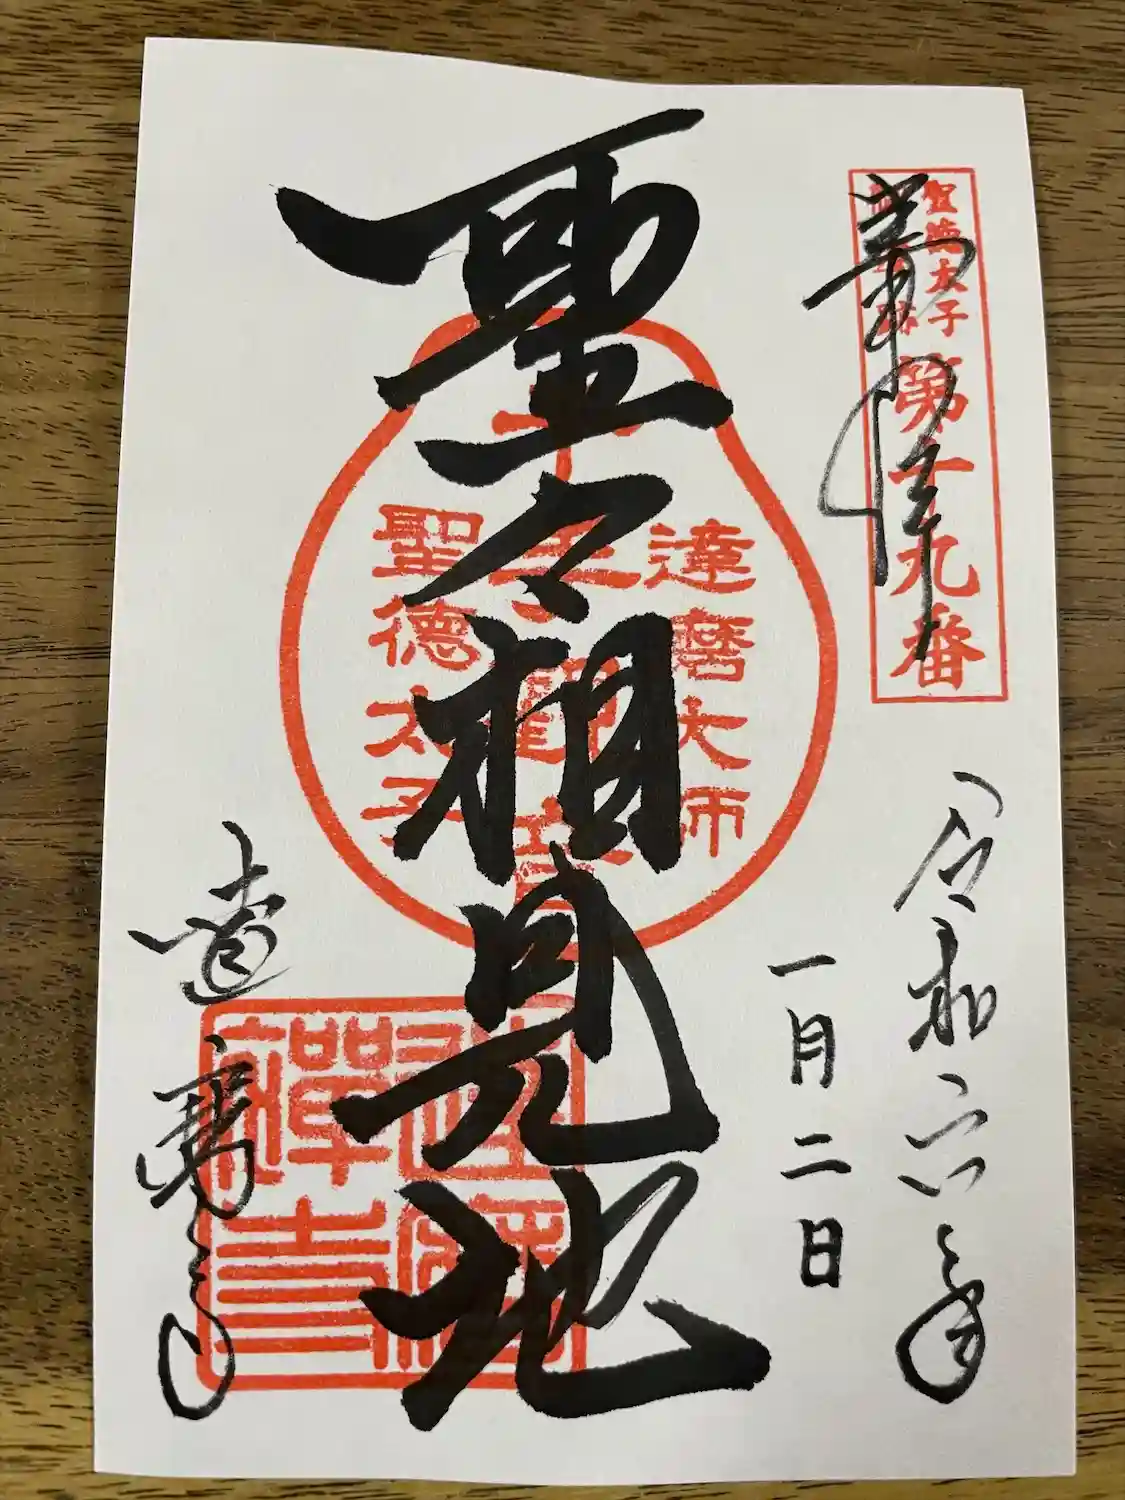 聖徳太子
第十九番
奉拝
令和六年
一月二日
聖々相見地
達磨大師
千手観音
聖徳太子
達磨寺
達磨禅寺